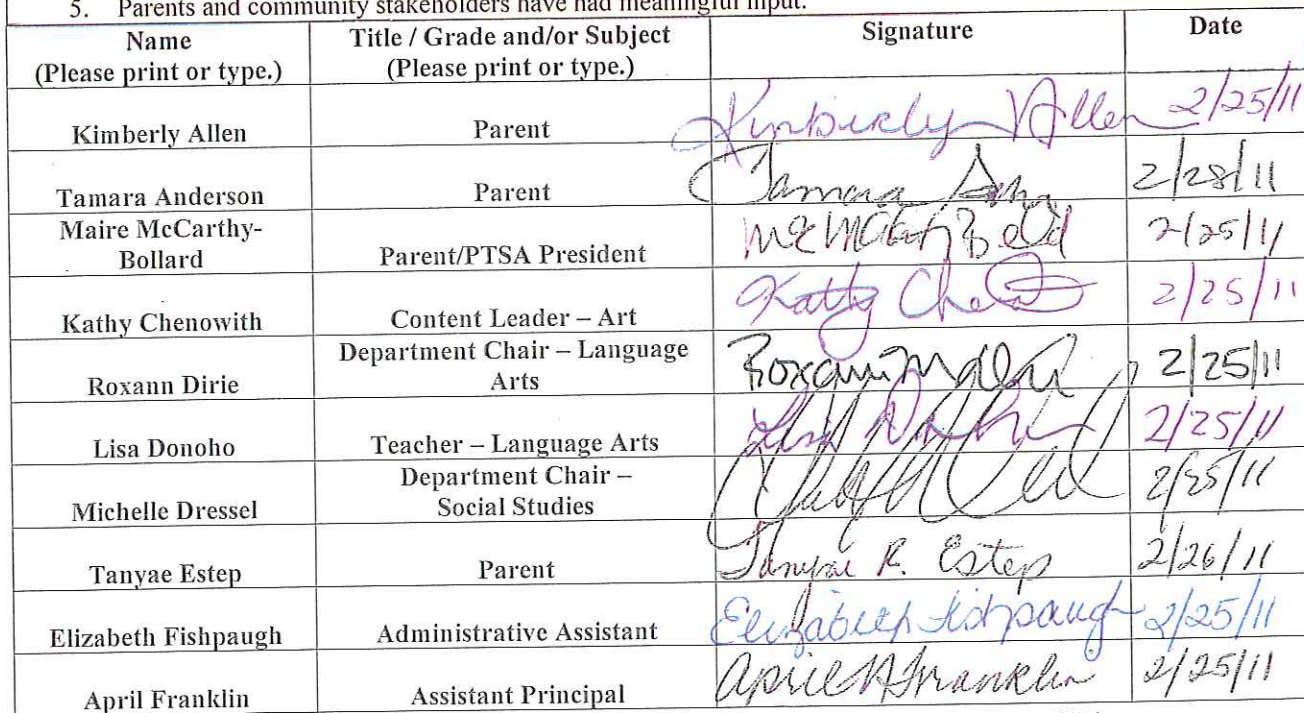 5. Parents and community stakeholders have had meaningful input.
Name Title / Grade and/or Subject Signature Date
(Please print or type.) (Please print or type.)
Kimberly Allen Parent Kimberly Allen 2/25/11
Tamara Anderson Parent Tamara 2/28/11
Maire McCarthy-
Bollard Parent/PTSA President 2/25/11
Kathy Chenowith Content Leader – Art Kathy 2/25/11
Department Chair – Language
Roxann Dirie Arts Roxann 2/25/11
Lisa Donoho Teacher – Language Arts Lisa 2/25/11
Department Chair –
Michelle Dressel Social Studies 2/25/11
Tanyae Estep Parent Tanyae R. Estep 2/26/11
Elizabeth Fishpaugh Administrative Assistant Elizabeth Fishpaugh 2/25/11
April Franklin Assistant Principal April Franklin 2/25/11